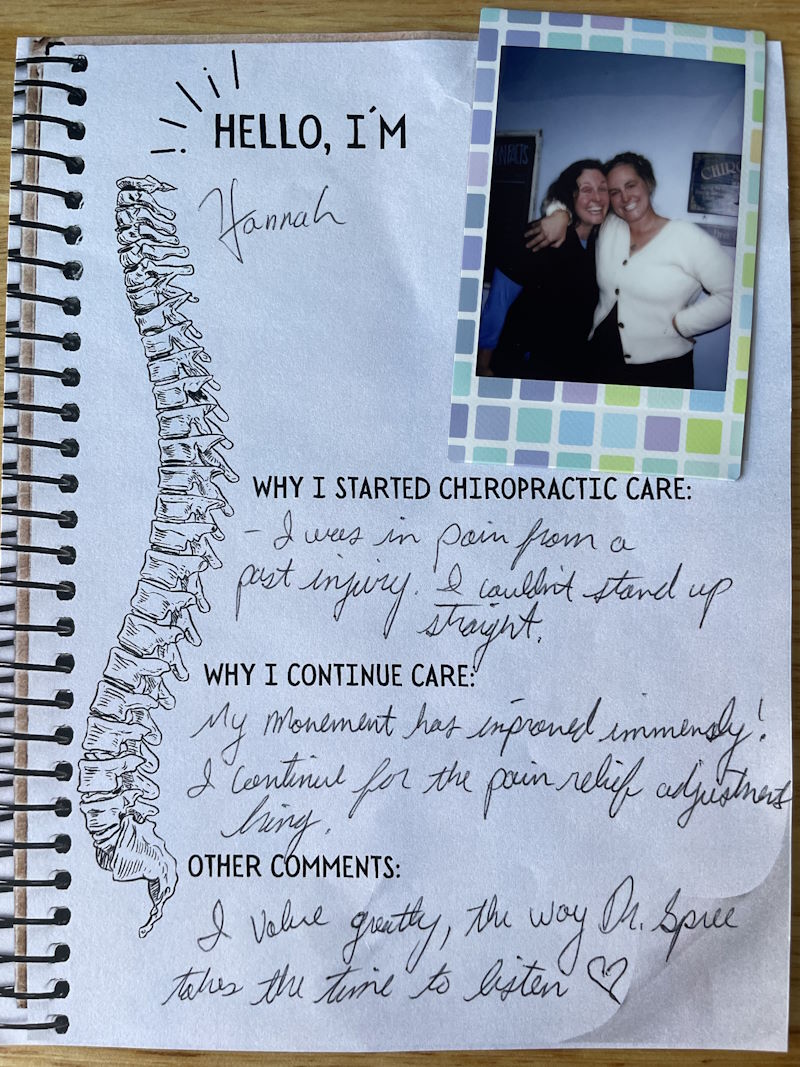 HELLO, I'M
Hannah
CHIRO
WHY I STARTED CHIROPRACTIC CARE:
- I was in pain from a
past injury. I couldn't stand up
straight.
WHY I CONTINUE CARE:
My movement has improved immensly!
I continue for the pain relief adjustments
bring.
OTHER COMMENTS:
I value greatly, the way Dr. Spree
takes the time to listen ♡